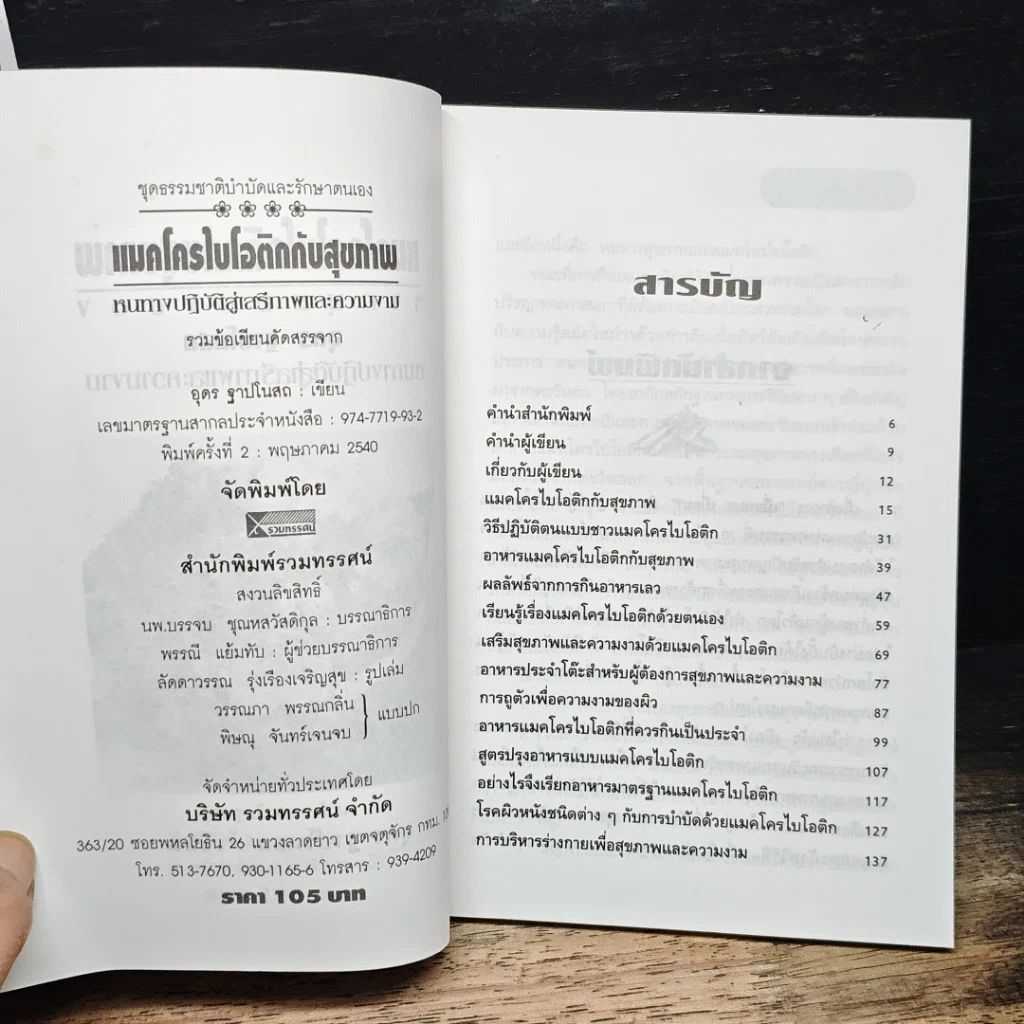 ชุดธรรมชาติบำบัดและรักษาตนเอง
แมคโครไบโอติกกับสุขภาพ
หนทางปฏิบัติสู่เสรีภาพและความงาม
รวมข้อเขียนคัดสรรจาก
อุดร ฐาปโนสถ : เขียน
เลขมาตรฐานสากลประจำหนังสือ : 974-7719-93-2
พิมพ์ครั้งที่ 2 : พฤษภาคม 2540
จัดพิมพ์โดย
รวมทรรศน์
สำนักพิมพ์รวมทรรศน์
สงวนลิขสิทธิ์
นพ.บรรจบ ชุณหสวัสดิกุล : บรรณาธิการ
พรรณี แย้มทับ : ผู้ช่วยบรรณาธิการ
ลัดดาวรรณ รุ่งเรืองเจริญสุข : รูปเล่ม
วรรณภา พรรณกลิ่น
พิษณุ จันทร์เจนจบ
แบบปก
จัดจำหน่ายทั่วประเทศโดย
บริษัท รวมทรรศน์ จำกัด
363/20 ซอยพหลโยธิน 26 แขวงลาดยาว เขตจตุจักร กทม.
โทร. 513-7670, 930-1165-6 โทรสาร : 939-4209
ราคา 105 บาท
สารบัญ
คำนำสำนักพิมพ์ 6
คำนำผู้เขียน 9
เกี่ยวกับผู้เขียน 12
แมคโครไบโอติกกับสุขภาพ 15
วิธีปฏิบัติตนแบบชาวแมคโครไบโอติก 31
อาหารแมคโครไบโอติกกับสุขภาพ 39
ผลลัพธ์จากการกินอาหารเลว 47
เรียนรู้เรื่องแมคโครไบโอติกด้วยตนเอง 59
เสริมสุขภาพและความงามด้วยแมคโครไบโอติก 69
อาหารประจำโต๊ะสำหรับผู้ต้องการสุขภาพและความงาม 77
การถูตัวเพื่อความงามของผิว 87
อาหารแมคโครไบโอติกที่ควรกินเป็นประจำ 99
สูตรปรุงอาหารแบบแมคโครไบโอติก 107
อย่างไรจึงเรียกอาหารมาตรฐานแมคโครไบโอติก 117
โรคผิวหนังชนิดต่าง ๆ กับการบำบัดด้วยแมคโครไบโอติก 127
การบริหารร่างกายเพื่อสุขภาพและความงาม 137